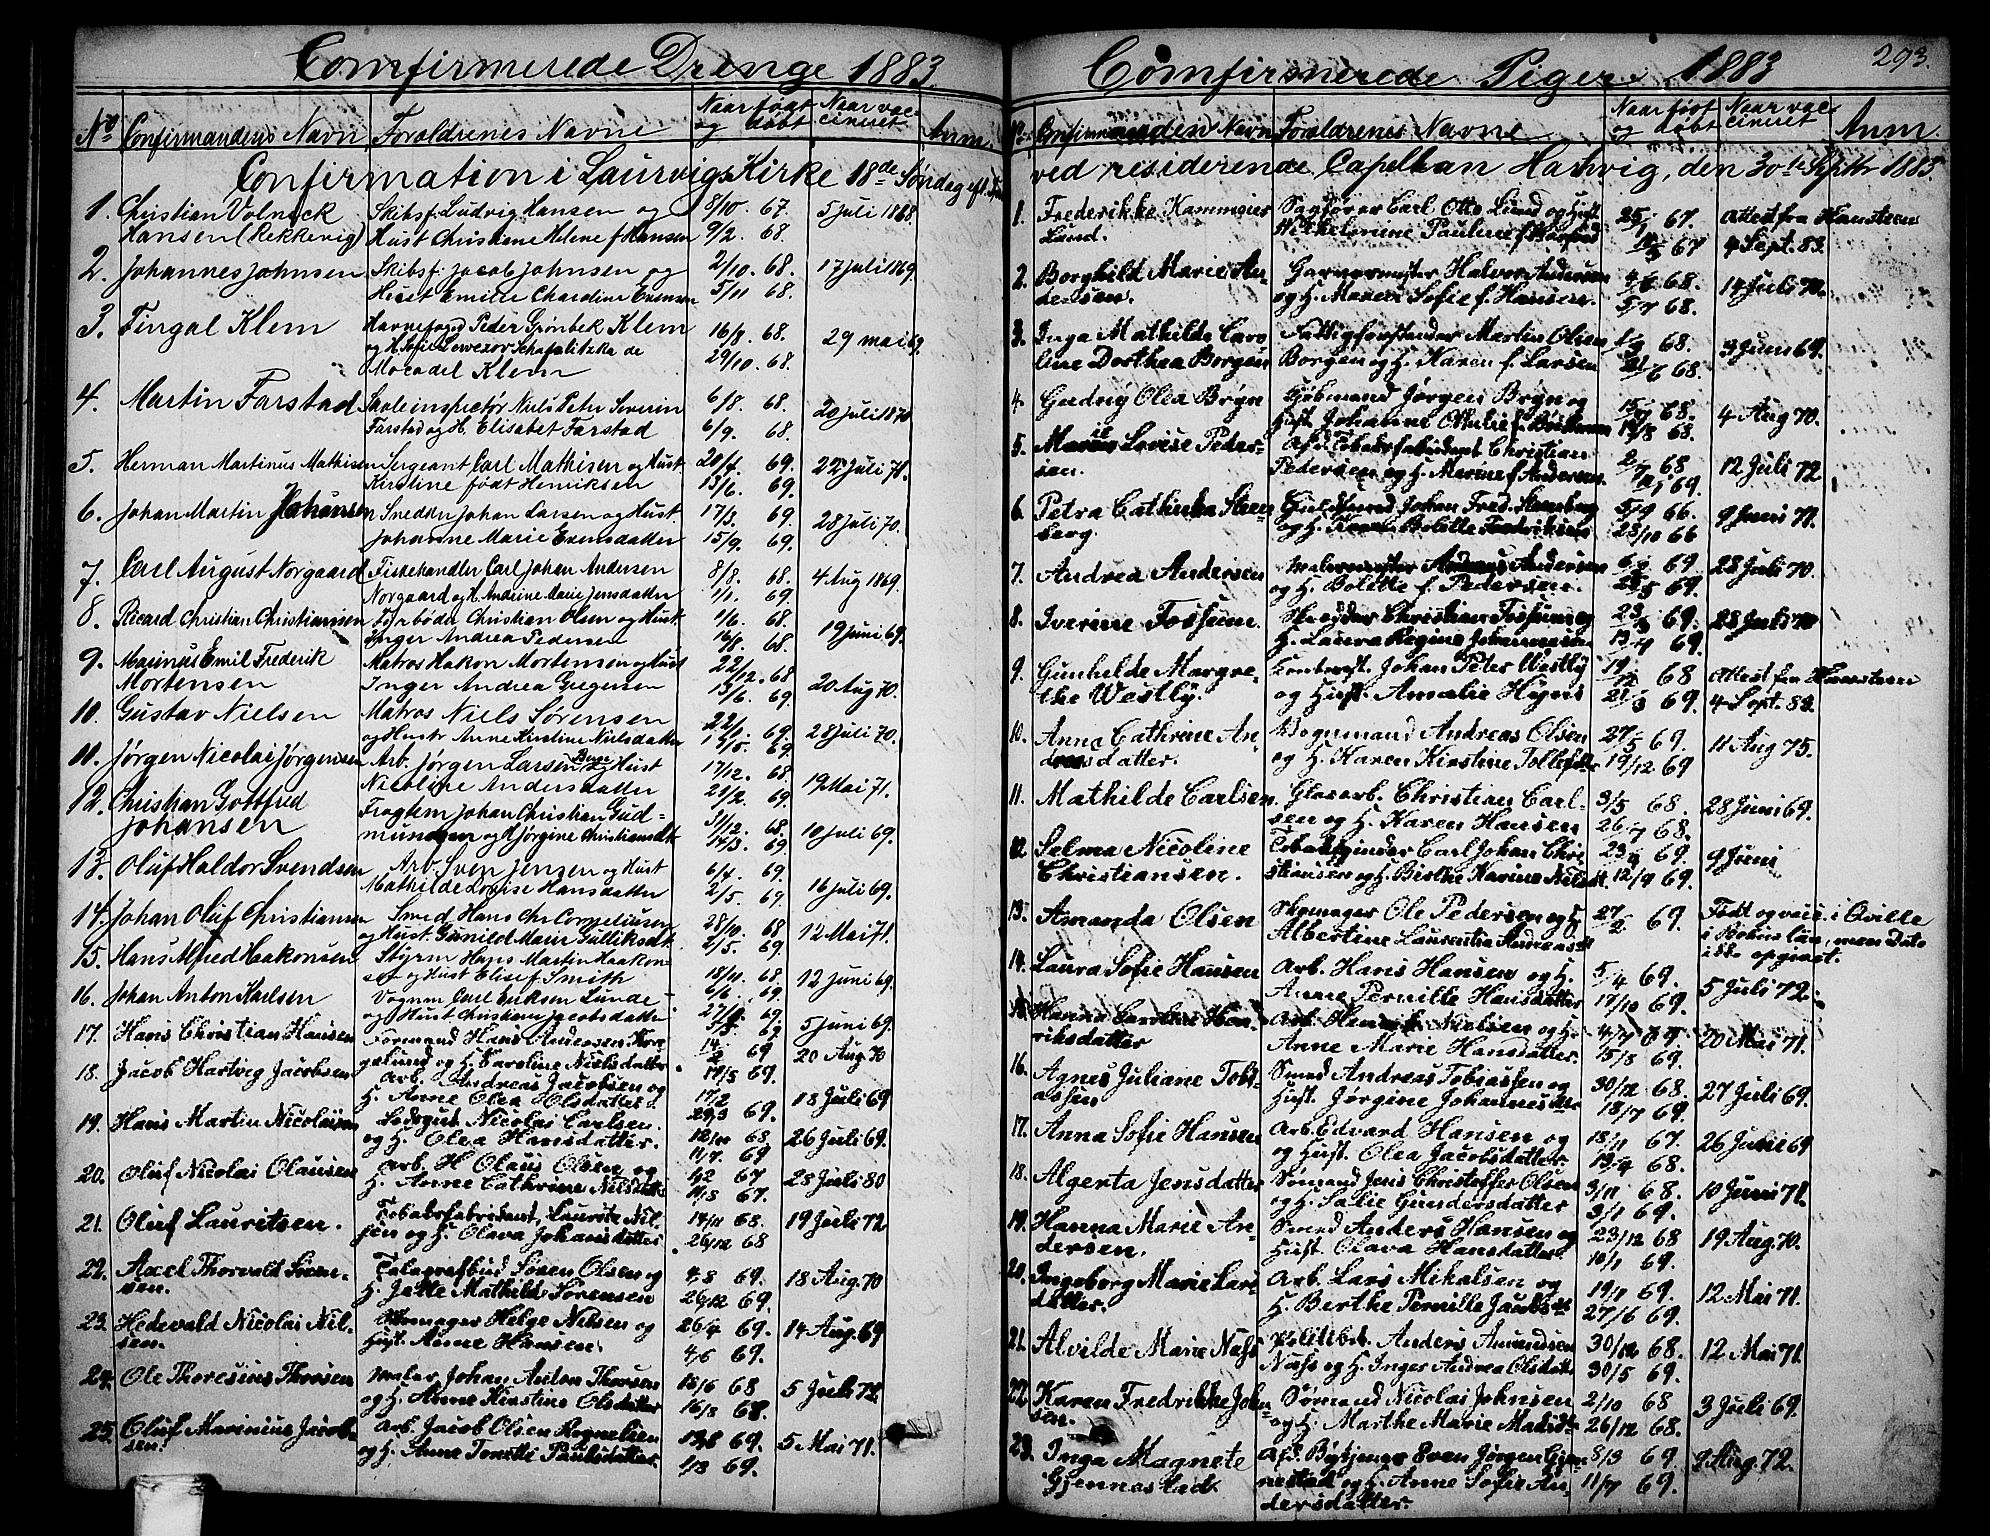 Comfirmerede Drenge 1883.
No Confirmandens Navn Forældrenes Navne Naar født og døbt Naar vaccineret Anm.
Confirmation i Laurvigs Kirke 18de Søndag eft.
1. Christian Volnick Skibsf. Ludvig Hansen og 8/10. 67. 5 juli 1868.
Hansen (Rekkevig) Hust Christiene Helene f Hansen 9/2 68.
2. Johannes Johnsen Skibsf. Jacob Johnsen og 2/10. 68. 17 juli 1869.
Hust Emilie Charoline Evensen 5/11 68.
3. Fingal Klem Havnefogd Peder Grønbek Klem 16/8. 68. 29 mai 69.
og H. Sofie Schafalitzka de 29/10. 68.
Mocadel Klem
4. Martin Farstad Skoleinspectør Niels Peter Severin 6/8. 68. 20 juli 1870
Farstad og H. Elisabet Farstad 6/9. 68.
5. Herman Martinus Mathisen Sergeant Carl Mathisen og Hust 20/4. 69. 22 Juli 71.
Kirstine født Henriksen 13/6. 69.
6. Johan Martin Johansen Snedker Johan Larsen og Hust. 17/3. 69. 28 juli 70.
Johanne Marie Evensdatter 15/9. 69.
7. Carl August Norgaard Fiskehandler Carl Johan Andersen 8/8. 68. 4 Aug 1869.
Norgaard og H. Andrine Marie Jensdatter 1/1. 69
8. Ricard Christian Christiansen Christian Olsen og Hust 1/6. 68. 19 juni 69.
Inger Andrea Pedersen 16/8. 68.
9. Marinus Emil Frederik Matros Hakon Mortensen og Hust 22/12. 68 20 Aug 70.
Mortensen Inger Andrea Gregersen 13/6. 69.
10. Gustav Nielsen Matros Niels Sørensen 22/1. 69. 28 juli 70.
og Hustr Anne Kirstine Nielsdatter 12/5. 69
11. Jørgen Nicolai Jørgensen Arb. Jørgen Larsen og Hust 17/12. 68. 19 Mai 71.
Nicoline Andersdatter 21/2. 69.
12. Christian Gottfred Fragtem Johan Christian Gud= 31/12. 68. 10 juli 69.
Johansen mundsen og H Jørgine Christiansdt 14/3. 69
13. Oluf Haldor Svendsen Arb. Sven Jensen og Hust 6/4. 69. 16 juli 69.
Mathilde Lovise Hansdatter 2/5. 69.
14. Johan Oluf Christiansen Smed Hans Chr Corneliusen 28/10. 68 12 Mai 71.
og Hust. Gunild Maier Gulliksdt. 2/5. 69.
15. Hans Alfred Haakonsen Styrm Hans Martin Haakon- 18/11. 68. 12 juni 69.
sen og Hust Elisef Smith 6/6. 69.
16. Johan Anton Karlsen Vognm Carl Eriksen Lunde 69 5 juni 69.
og Hust Christiane Jacobsdatter 69
17. Hans Christian Hansen Formand Hans Andersen 14/2 69 20 Aug. 70
og H. Karoline Nielsdatter. 17/5 69.
18. Jacob Hartvig Jacobsen Arb. Andreas Jacobsen og 17/2 18 Juli 69
H. Anne Olea Olsdatter. 29/3 69.
19. Hans Martin Nicolaisen Lodsgut Nicolai Carlsen. 12/10 68. 26 Juli 69.
og H. Olea Hansdatter. 11/7 69
20. Oluf Nicolai Olausen Arb. H Olaus Olsen og 67 28 Juli 80
H. Anne Cathrine Nilsdatt. 67.
21. Oluf Lauritsen. Tobaksfabrikant, Laurits Nil- 14/11 68. 19 Juli 72
sen og H. Olava Johansdatter 26/12 68
22. Axel Thorvald Søren- Telegrafbud Søren Olsen og 4/8 69. 18 Aug. 70
sen. H. Jette Mathilde Sørensen 26/12 69.
23. Hedevald Nicolai Nil- Skomager Helge Nilsen og 26/4 69. 14 Aug. 69
sen. Hust. Anne Hansen. 4/6 69.
24. Ole Thoresius Thorsen Maler Johan Anton Thorsen 15/6 68 5 Juli 72
og H. Anne Kirstine Olsdatter 16/8 68.
25. Oluf Marinius Jacob- Arb. Jacob Olsen Rognelien 69. 5. Mai 71.
sen. og H. Anne Tonette Paulsdatter. 1/8 69.
Comfirmerede Piger 1883 293.
No Confirmandens Navn Forældrenes Navne Naar født og døbt Naar vaccineret Anm.
ved residerende Capellan Hartvig, den 30te Septbr 1883.
1. Frederikke Hammeier Sagfører Carl Otto Lund og Hust 25/1 67. Attest fra Hansteen
Lund. Wilhelmine Pauline f 67 4 Sept. 83.
2. Borghild Marie An- Garvermester Halvor Andersen 4/6 68. 14 Juli 70.
dersen. og H. Maren Sofie f. Hansen. 5/7 68.
3. Inga Mathilde Caro Fattigforstander Martin Olsen 68. 3 Juni 69.
line Dorthea Borgen Borgen og H. Karen f. Larsen 21/6 68.
4. Gudvig Olea Bryn Kjøbmand Jørgen Bryn og 68. 4 Aug 70.
Hust Johanne Othilie f. 68.
5. Marie Lovise Peder- Afd. Tobaksfabrikant Christian 2/7 68 12 Juli 72
sen. Pedersen og H. Marine f Andersen. 69.
6. Petra Cathinka Sten- Guldsmed Johan Fred. Stenberg 5/9 66. 9 Juni 71.
berg. og H. Bolette Fredriksen 23/10 66
7. Andrea Andersen Malermester Andersen 69. 28 Juli 70.
og H. Bolette f. Pedersen. 69.
8. Iverine Fossum. Skrædder Christian Fossum og 69. 28 Juli 70
H. Laura Regine Johannesen 69.
9. Gunhilde Margre- Johan Peter Westly 19/12 68 Attest fra Hansteen
the Westly. og Hust. Amalie Hyms 21/3 69. 4 Sept. 83.
10. Anna Cathrine An- Vognmand Andreas Olsen 27/5 69. 11 Aug 75.
dersdatter. og H. Karen Kirstine Tollefdt 19/12 69
11. Mathilde Carlsen. Glasarb. Christian Carl- 3/5 68. 28 Juni 69.
sen og H. Karen Hansen 26/7 68.
12. Selma Nicoline Tobakspinder Carl Johan Chri- 69. 9 Juni
Christiansen. stiansen og H. Birthe Karine Nilsdt. 12/9 69.
13. Amanda Olsen Skomager Ole Pedersen og H. 27/2 69. Født og vacc. i Qville
Albertine Laurentia Andreasdt i Bohus län, men Dato
ikke opgivet.
14. Laura Sofie Hansen Arb. Hans Hansen og H. 5/4 69. 5 Juli 72.
Anne Pernille Hansdatter 17/10 69.
15. Hanna Caroline Hen- Arb. Henrik Nielsen og H. 4/7 69. 20 Mai 71.
riksdatter Anne Marie Hansdatter. 15/8 69.
16. Agnes Juliane Tobi- Smed Andreas Tobiassen og 30/12 68. 27 Juli 69.
assen Hust. Jørgine Johannesdt 18/7 69.
17. Anna Sofie Hansen Arb. Edvard Hansen og 18/11 67. 26 Juni 69
og Hust. Olea Jacobsdatter 13/4 68.
18. Algerta Jensdatter Sømand Jens Christoffer Olsen 3/11 68. 10 Juni 71.
og H. Salie Gundersdatter 3/1 69.
19. Hanna Marie An- Smed Anders Hansen og 23/12 68 19 Aug. 70.
dersen. Hust. Olava Hansdatter. 10/1 69.
20. Ingeborg Marie Lars- Arb. Lars Mikalsen og 19/1 69. 12 Mai 71.
datter. H. Berthe Pernille Jacobsdt 27/6 69.
21. Alvilde Marie Næss Politibet. Anders Amundsen 30/12 68. 12 Mai 71.
Næss og H. Inger Andrea Olsdatt. 30/5 69.
22. Karen Fredrikke John- Sømand Nicolai Johnsen 2/10 68 3 Juli 69.
sen. og H. Marthe Marie Madsdt 26/12 68.
23. Inga Magnete Afd. Sven Jørgen Gjen- 8/3 69. 9 Aug. 72.
Gjennestad. nestad og H. Anne Sofie An- 11/7 69.
dersdatter.